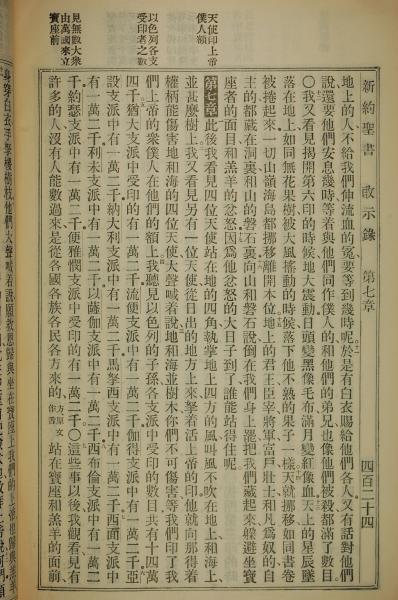 新約聖書　啟示錄　第七章　四百二十四
地上的人不給我們伸流血的冤要等到幾時呢於是有白衣賜給他們各人又有話對他們
說還要他們安息幾時等着與他們同作僕人的和他們的弟兄也像他們被殺都滿了數目
〇我又看見揭開第六印的時候地大震動日頭變黑像毛布滿月變紅像血天上的星辰墜
落在地上如同無花果樹被大風搖動的時候落下他不熟的果子一樣天就挪移如同書卷
被捲起來一切山嶺海島都挪移離開本位地上的君王臣宰將軍富戶壯士和凡爲奴的自
主的都藏在洞裏和山的磐石裏向山和磐石說倒在我們身上罷把我們藏起來躱避坐寶
座者的面目和羔羊的忿怒因爲他忿怒的大日子到了誰能站得住呢
第七章此後我看見四位天使站在地的四角執掌地上四方的風叫風不吹在地上和海上
並甚麼樹上我又看見另有一位天使從日出的地方上來拏着活上帝的印他就向那得着
權柄能傷害地和海的四位天使大聲喊着說地和海並樹木你們不可傷害等我們印了我
們上帝的衆僕人在他們的額上我聽見以色列的子孫各支派中受印的數目共有十四萬
四千猶大支派中受印的有一萬二千流便支派中有一萬二千伽得支派中有一萬二千亞
設支派中有一萬二千納大利支派中有一萬二千馬拏西支派中有一萬二千西面支派中
有一萬二千利未支派中有一萬二千以薩伽支派中有一萬二千西布倫支派中有一萬二
千約瑟支派中有一萬二千便雅憫支派中受印的有一萬二千〇這些事以後我觀看見有
許多的人沒有人能數過來是從各國各族各民各方來的方原文作舌站在寶座和羔羊的面前
天使印上帝
僕人額
以色列各支
受印者之數
見無數大衆
由萬國來立
寶座前